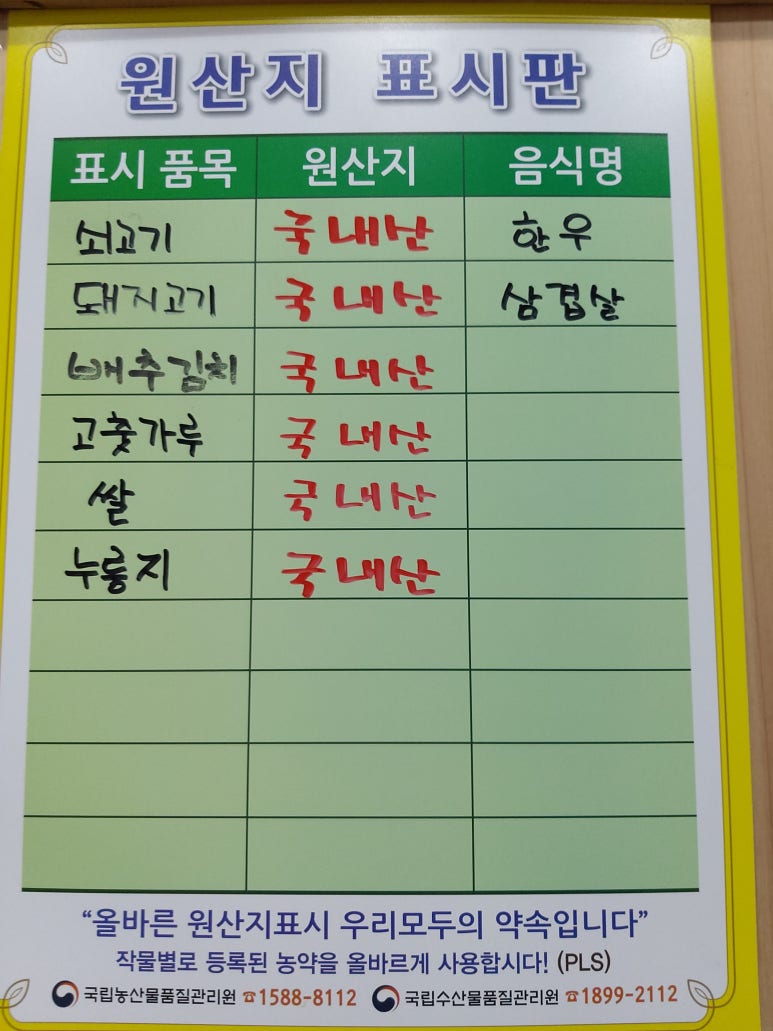 원산지 표시판
표시 품목 원산지 음식명
쇠고기 국내산 한우
돼지고기 국내산 삼겹살
배추김치 국내산
고춧가루 국내산
쌀 국내산
누룽지 국내산
“올바른 원산지표시 우리모두의 약속입니다”
작물별로 등록된 농약을 올바르게 사용합시다! (PLS)
국립농산물품질관리원 ☎1588-8112 국립수산물품질관리원 ☎1899-2112